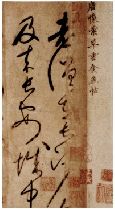 唐懷素草書食魚帖
老僧在長沙食
及來長安城中